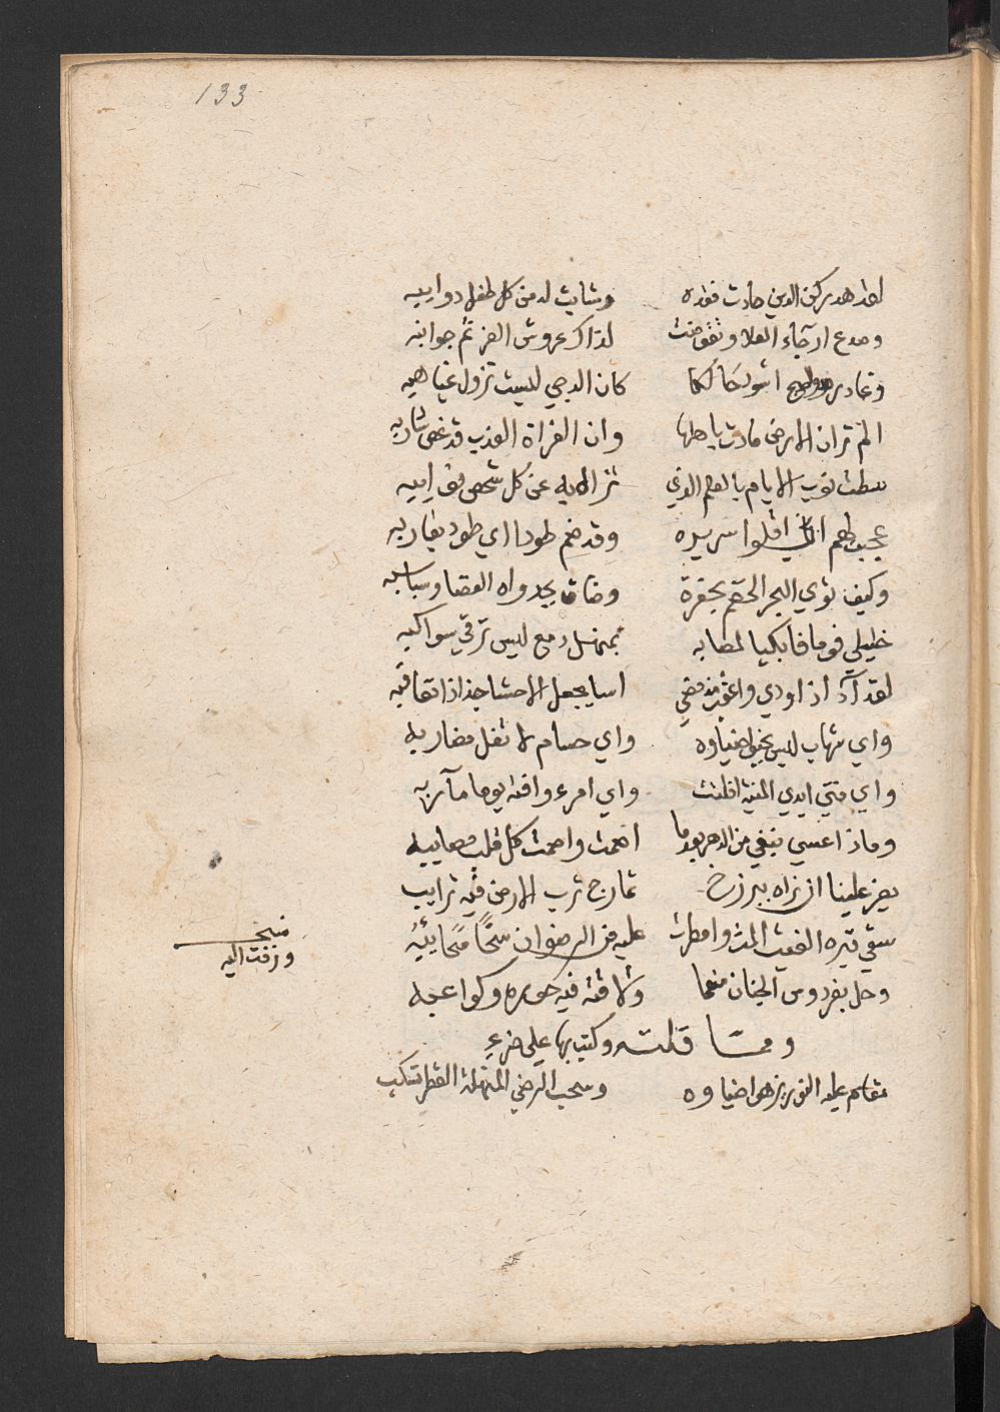 133
لقد هد ركن الدين حادث فقده وشابت له من كل طفل ذوايبه
وصدع ارجاء العلا وتقوضت لذاك عروش العز ثم جوانبه
وغادر اشولحالكا كان الدجي ليست تزول غياهبه
الم تر ان الارض مادت باهلها وان الفراة العذب قد غص شاربه
سطت نوب الايام بالعلم الذي تزال به عن كل شخص نوايبه
عجبت لهم اني اقلوا سريره وقد ضم طودا اي طود يقاربه
وكيف ثوي البحر الخضم بحفرة وضاق بجدواه الفضا وسباسبه
خليلي قوما فابكيا لمصابه بمنهل دمع ليس ترقي سواكبه
لقد آد اذ اودي واعقب مذ مضي اسا يجعل الاحشا جذاذا تعاقبه
واي شهاب ليس يخبو ضياوه واي حسام لا تفل مضاربه
واي فتي ايدي المنية افلتت واي امرء وافته يوما مآربه
وماذا عسي نبغي من الدهر بعدما اصمت واصمت كل قلب مصايبه
يعز علينا ان نراه ببرزخ تمازج ترب الارض فيه ترايب
سقي قبره الغيث الملث وامطرت عليه من الرضوان سحًّا سحائبُهُ
وحل بفردوس الجنان منعما ولاقته فيه حوره وكواعبه
نسخه
وزفت اليه
ومما قلته وكتب بها علي ضرع
مقام عليه النور يزهو ضياوه وسحب الرضي المنهلة القطر تسكب